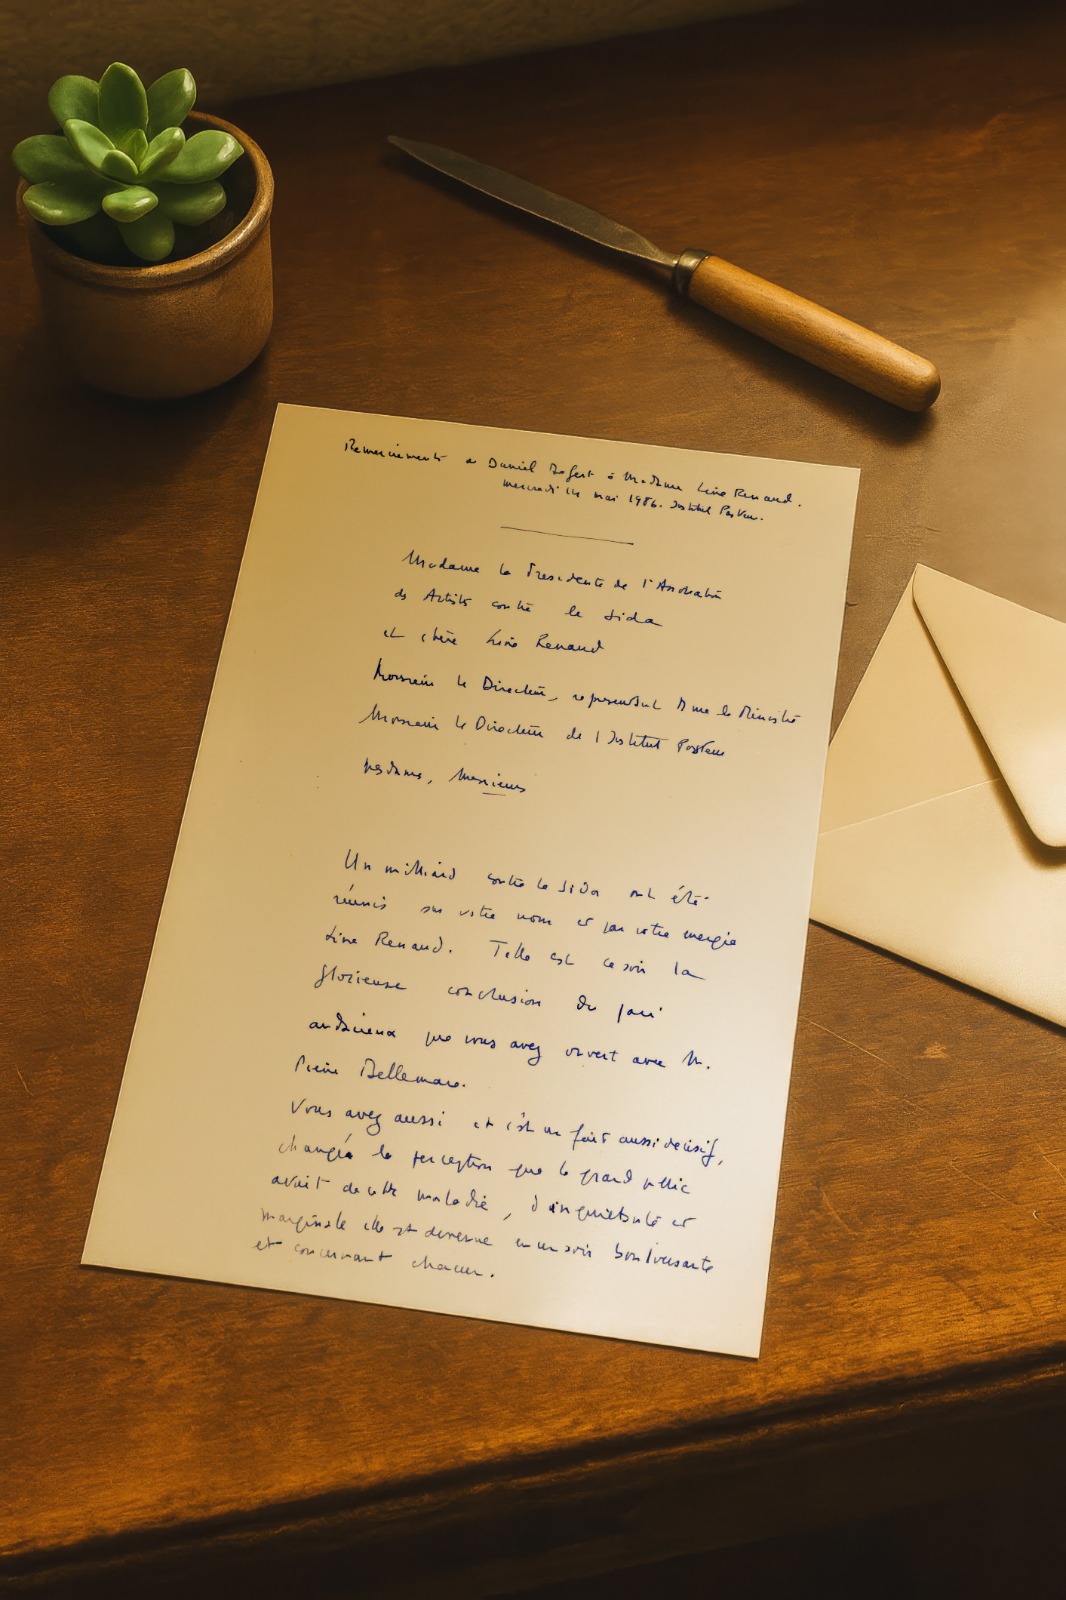 Remerciements de Daniel Defert à Madame Line Renaud.
mercredi 14 mai 1986. Institut Pasteur.
Madame la Présidente de l'Association
des Artists contre le Sida
et chère Line Renaud
Monsieur le Directeur, représentant Mme le Ministre
Monsieur le Directeur de l'Institut Pasteur
Mesdames, Messieurs
Un milliard contre le Sida ont été
réunis sur votre nom et par votre energie
Line Renaud. Telle est ce soir la
glorieuse conclusion du pari
audacieux que vous avez ouvert avec M.
Pierre Bellemare.
Vous avez aussi et c'est un fait aussi decisif,
changée la perception que le grand public
avait de cette maladie, d'inquietante et
marginale elle est devenue en un soir bouleversante
et concernant chacun.